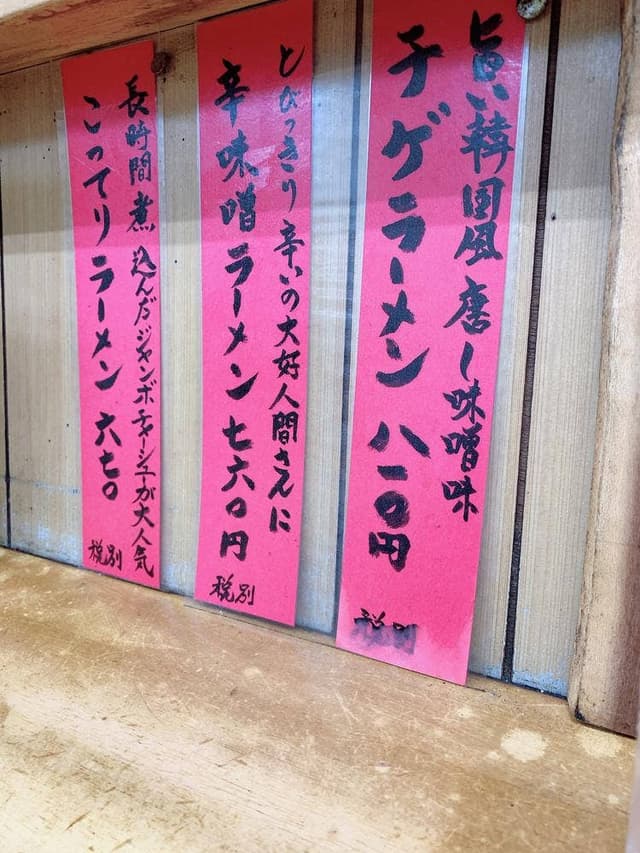 旨い韓国風唐し味噌味
チゲラーメン 八一〇円
税別
とびっきり辛いの大好人間さんに
辛味噌ラーメン 七六〇円
税別
長時間煮込んだジャンボチャーシューが大人気
こってりラーメン 六七〇
税別